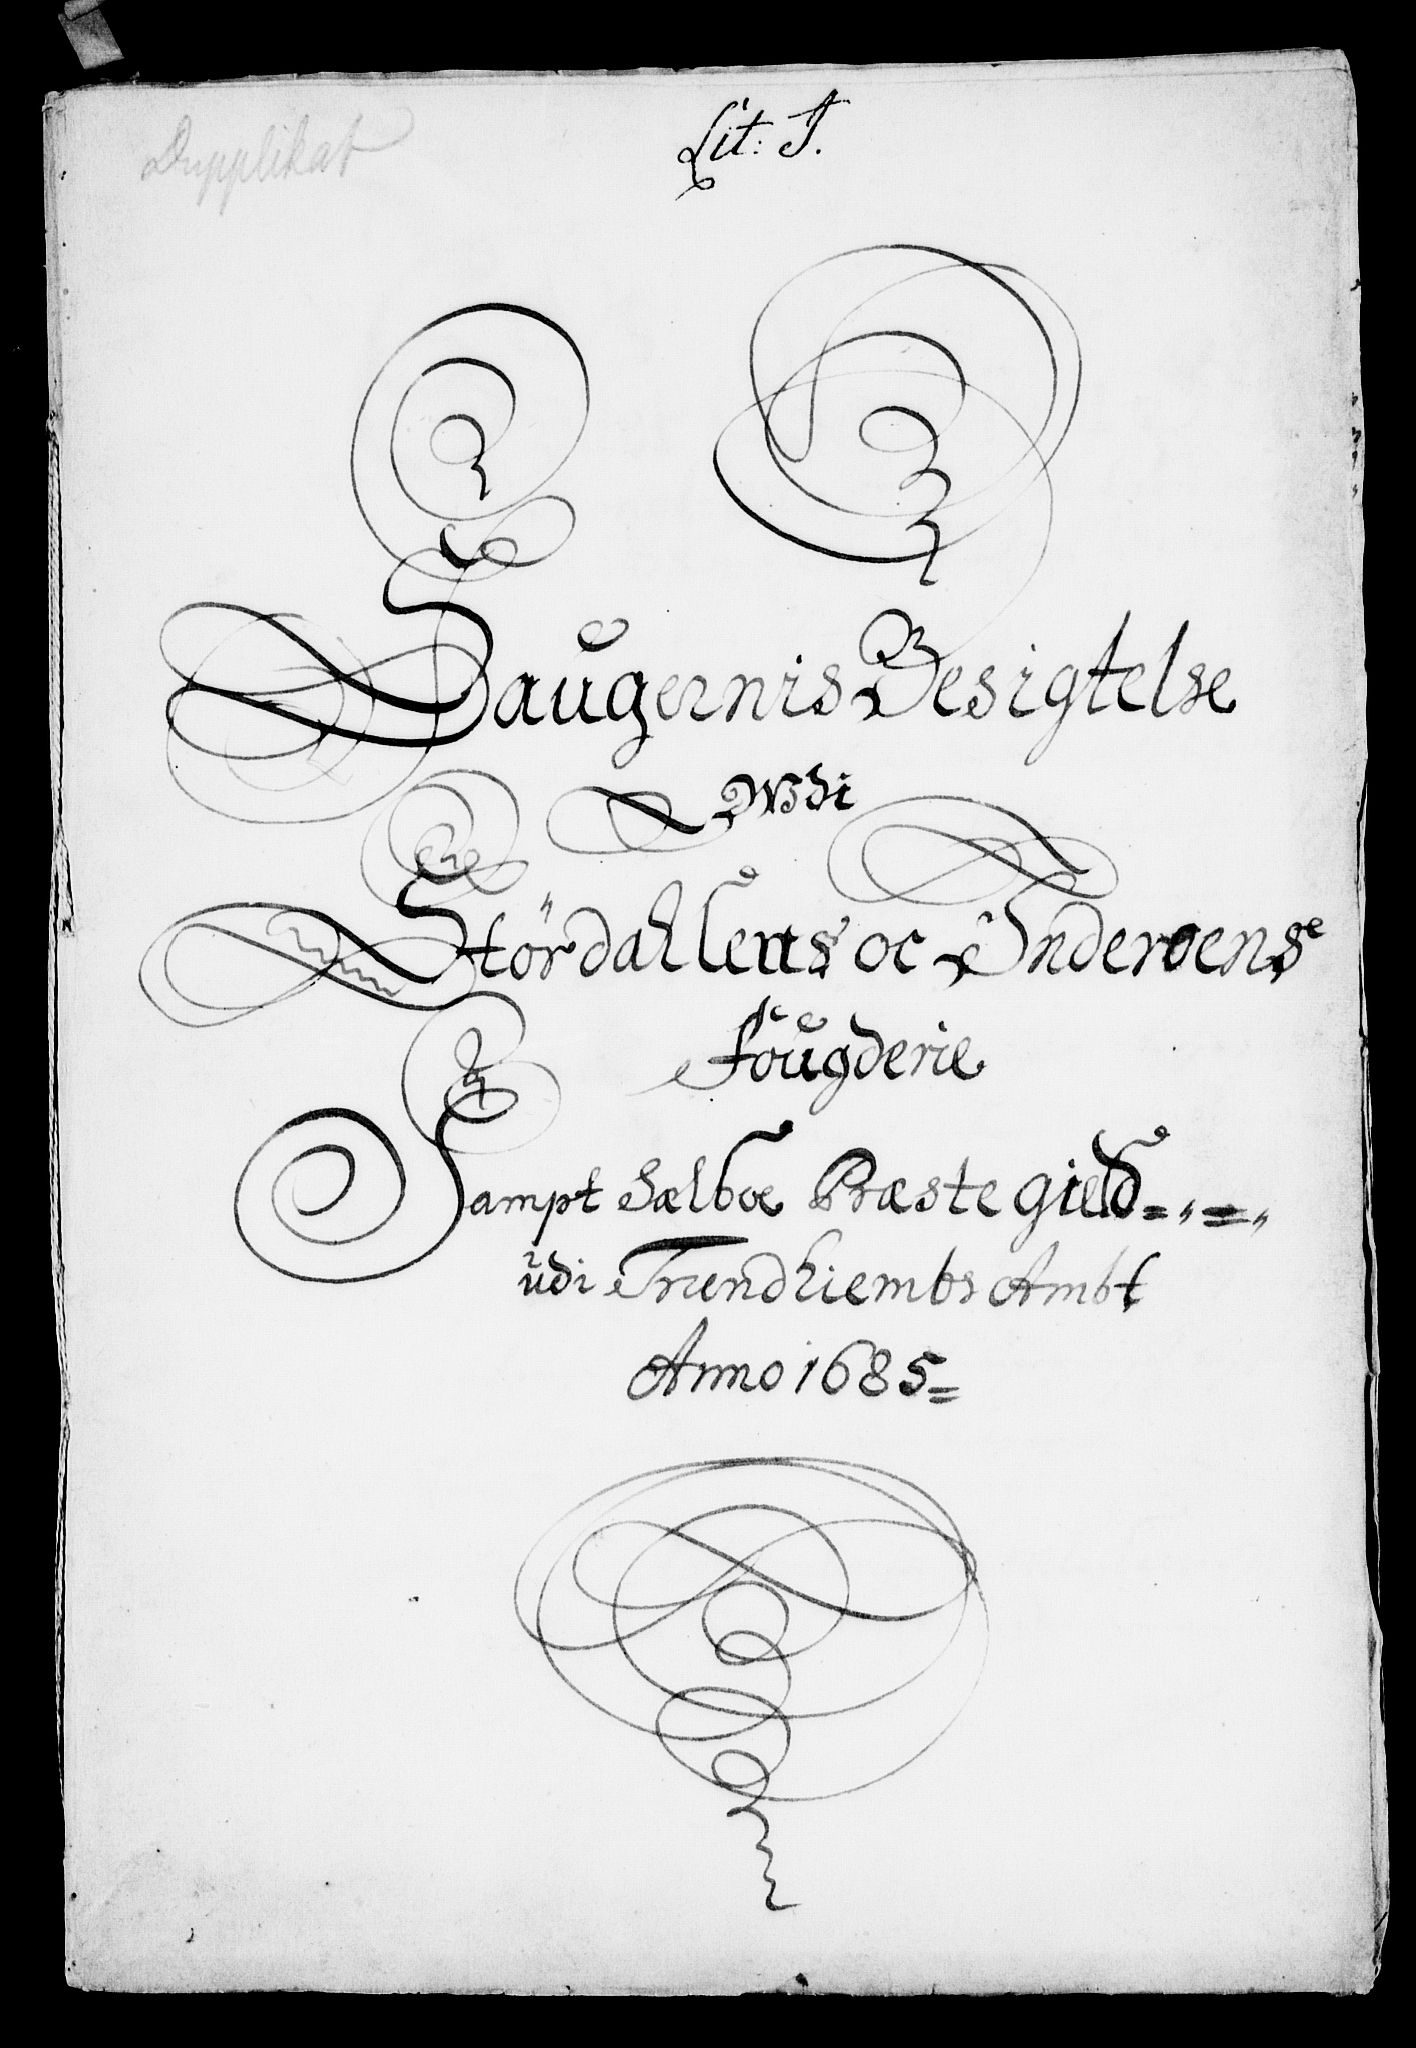 Dupplikat
Lit: J.
Saugernis Besigtelse
Wdi
Stördahlens oc Inderoens
Fougderie
Sampt Sælboe Præste gield
udi Trundhiembs Ambt
Anno 1685